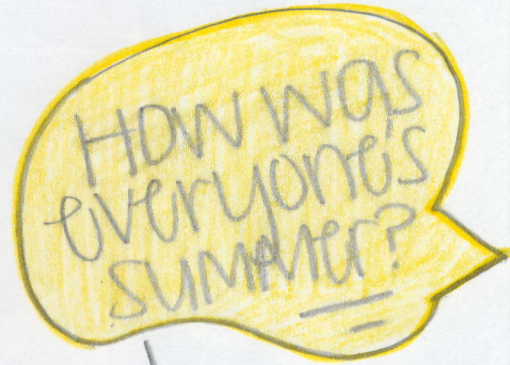 How was
everyone's
summer?